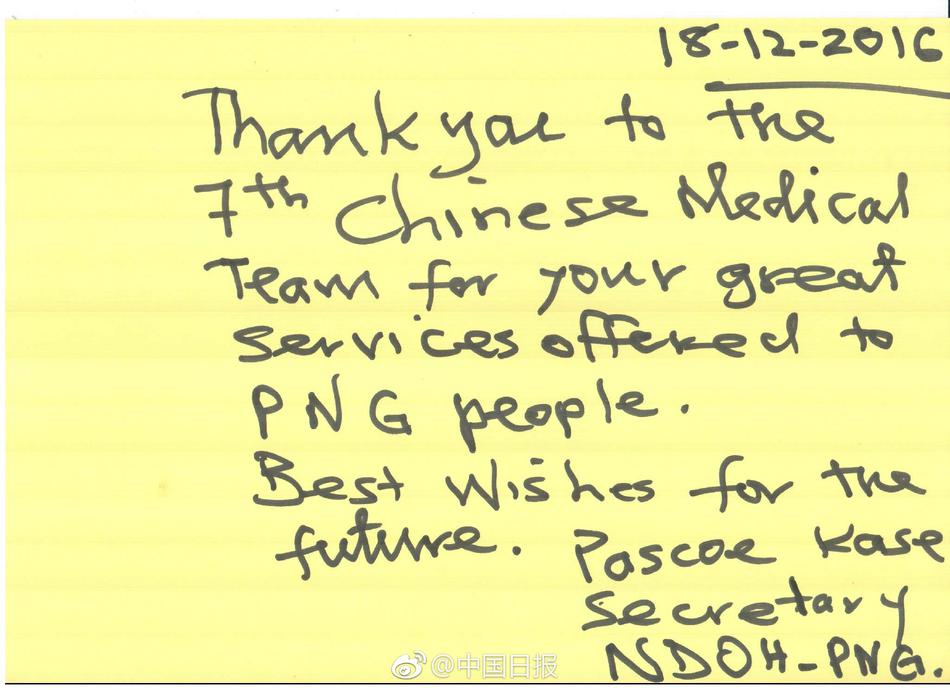 18-12-2016
Thank you to the
7th Chinese Medical
Team for your great
services offered to
PNG people.
Best Wishes for the
future. Pascoe Kase
Secretary
NDOH-PNG.
@中国日报